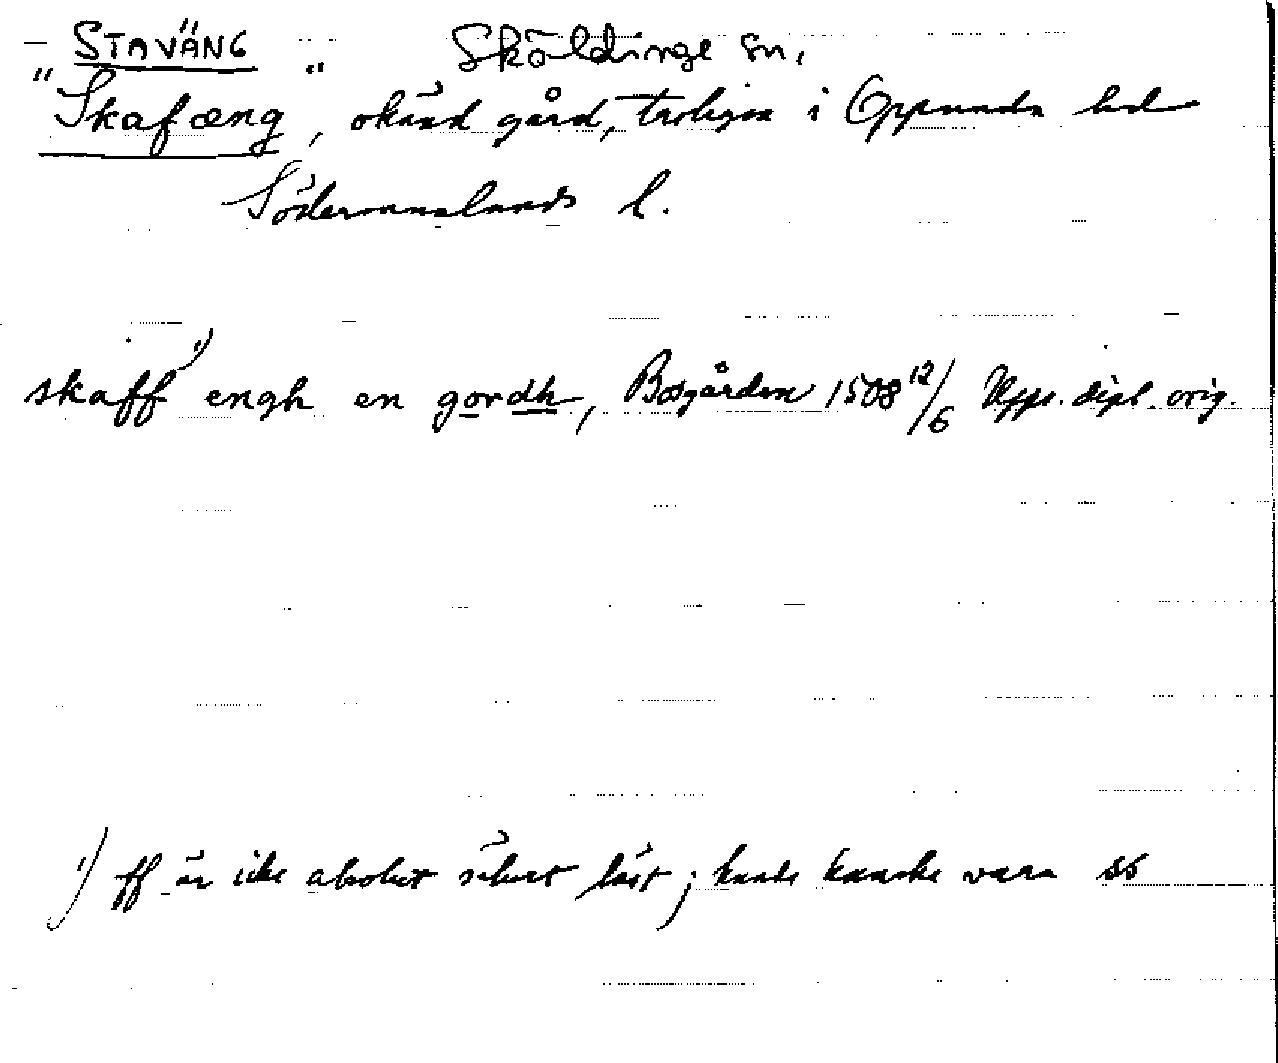 STAVÄNG Sköldinge sn.
"Skafæng", okänd gård, troligen i Oppunda hd
Södermanlands l.
skaff 1) engh en gordh, Bosgården 1508 12/6 Upps. dipl. orig.
1) ff är icke absolut säkert läst; kunde kanske vara ss